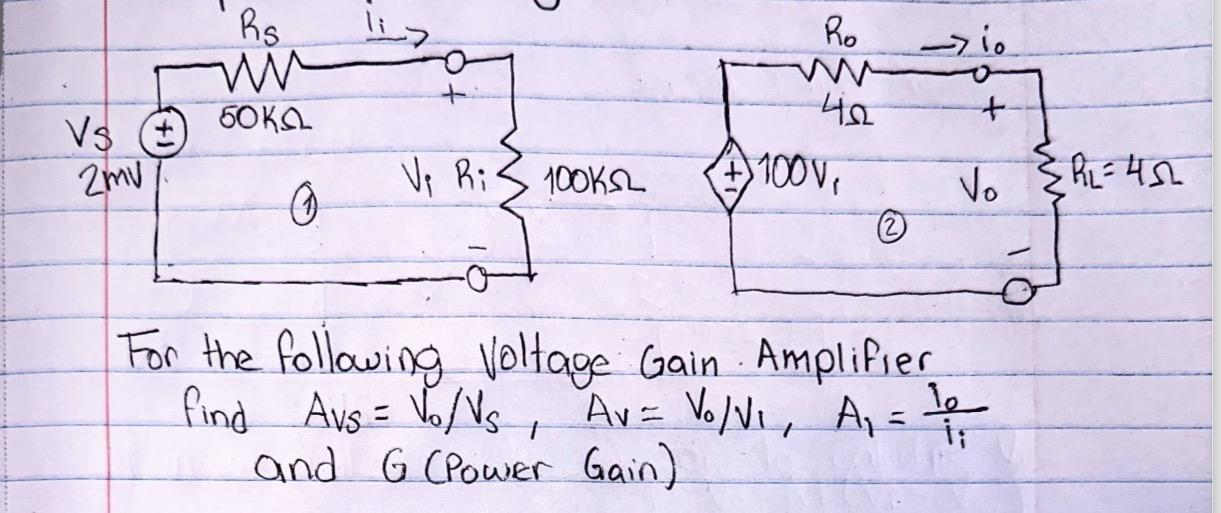 Rs ii → Ro → io
+ 50KΩ 4Ω +
Vs ± 2mV Vi Ri 100KΩ ± 100Vi Vo RL = 4Ω
① ②
- -
For the following Voltage Gain Amplifier
find Avs = Vo/Vs , Av = Vo/Vi , Ai = io/ii
and G (Power Gain)